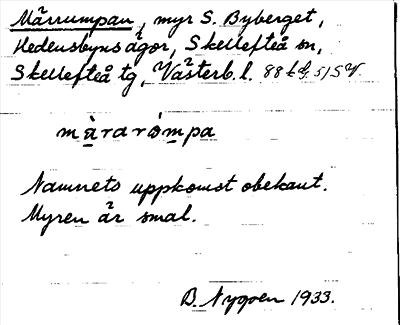 Märrumpan, myr S. Byberget,
Hedensbyns ägor, Skellefteå sn,
Skellefteå tg, Västerb. l.
màrarómpa
Namnets uppkomst obekant.
Myren är smal.
B. Nygren 1933.